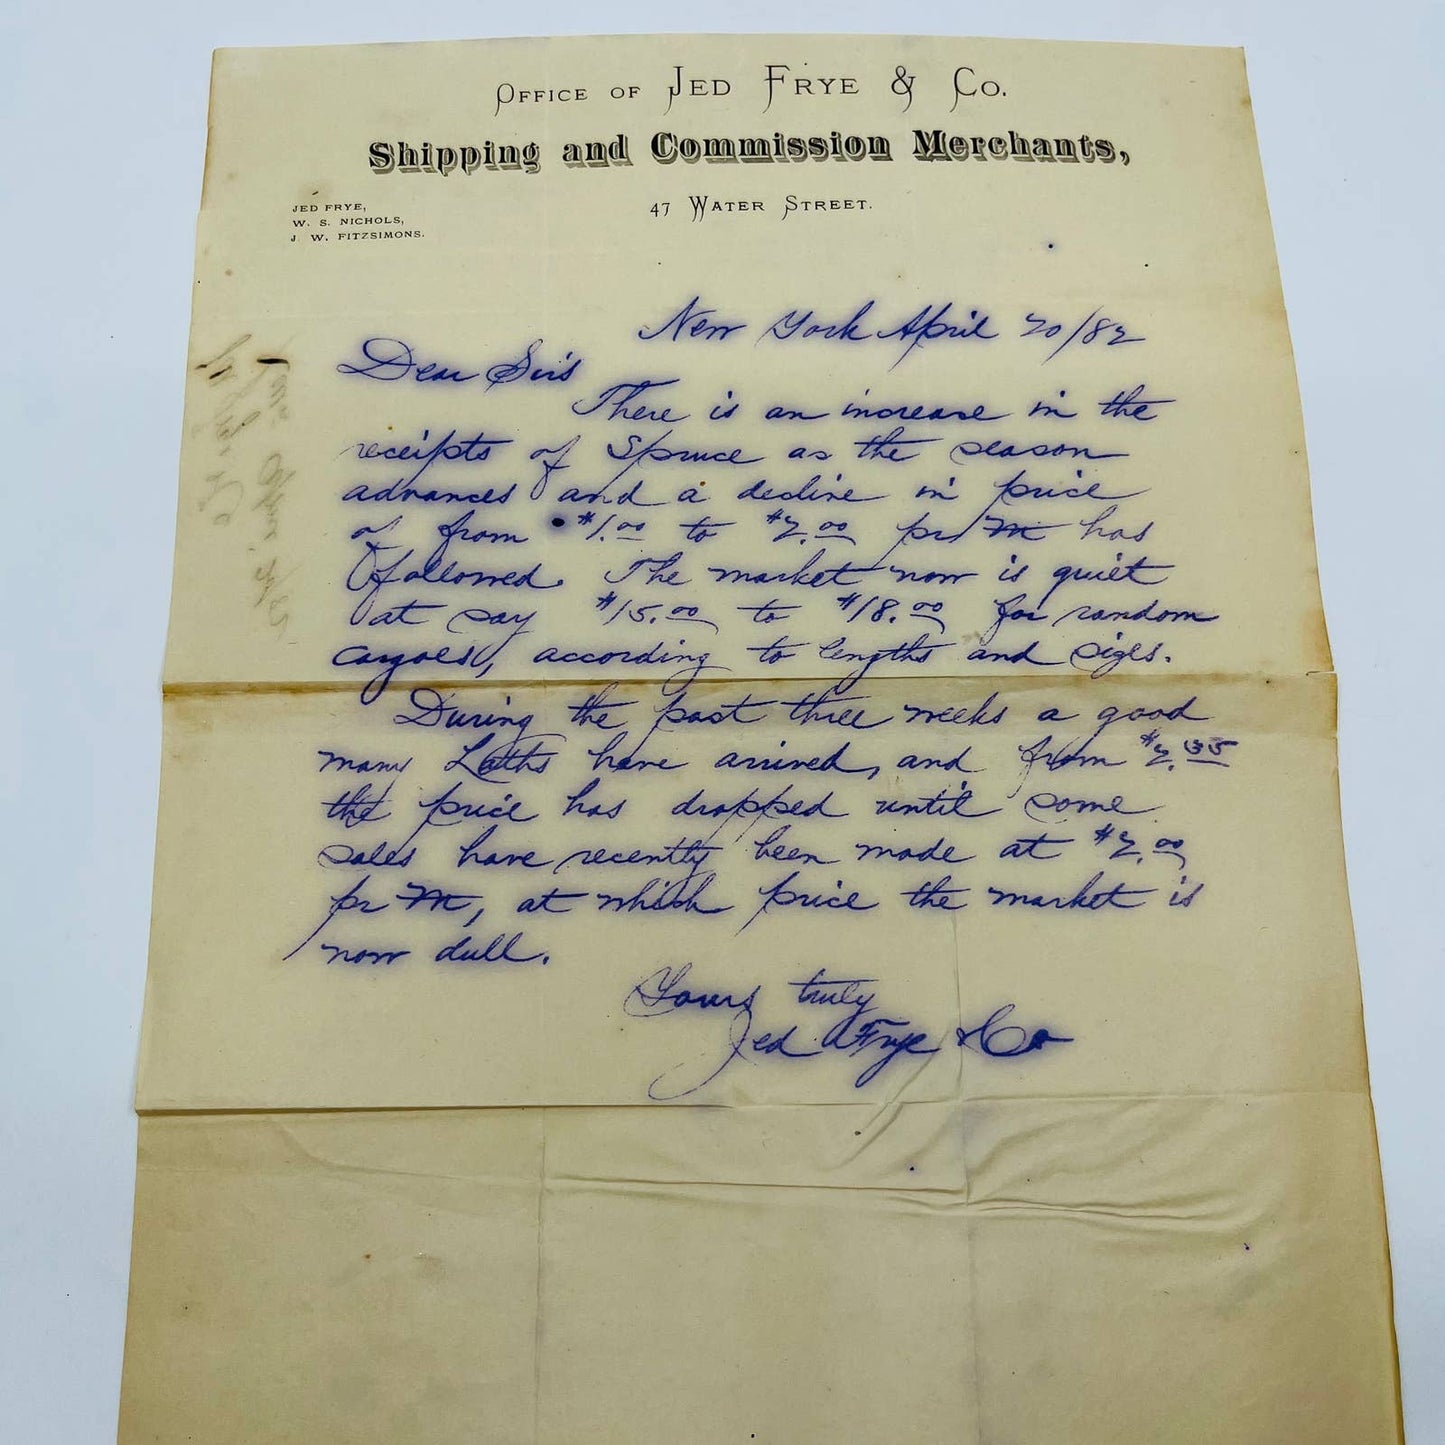 OFFICE OF JED FRYE & CO.
Shipping and Commission Merchants,
47 WATER STREET.
JED FRYE,
W. S. NICHOLS,
J. W. FITZSIMONS.
New York April 20/82
Dear Sirs
There is an increase in the
receipts of Spruce as the season
advances and a decline in price
of from $1.00 to $2.00 pr M has
followed. The market now is quiet
at say $15.00 to $18.00 for random
cargoes, according to lengths and sizes.
During the past three weeks a good
many Laths have arrived, and from
the price has dropped until some
sales have recently been made at $2.00
pr M, at which price the market is
now dull.
Yours truly
Jed Frye & Co